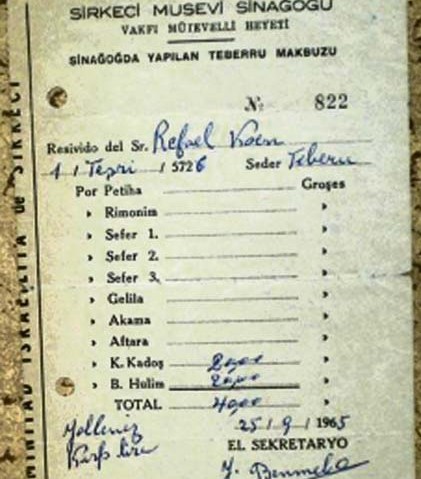 SİRKECİ MUSEVİ SİNAGOGU
VAKFI MÜTEVELLİ HEYETİ
SİNAGOĞDA YAPILAN TEBERRU MAKBUZU
№ 822
Resivido del Sr. Refael Koen
1 / Teşri / 5726 Seder Teberu
Por Petiha Groşes
» Rimonim »
» Sefer 1. »
» Sefer 2. »
» Sefer 3. »
» Gelila »
» Akama »
» Aftara »
» K. Kadoş 20,00 »
» B. Hulim 20,00 »
TOTAL 40,00 »
25 / 9 / 1965
Yallınız
Kırk lira
EL SEKRETARYO
de SİRKECİ